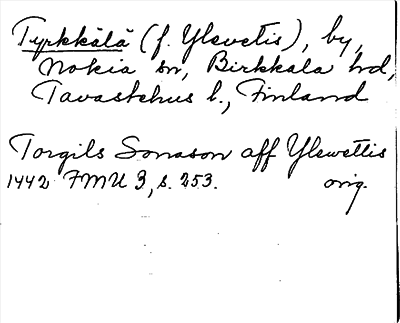 Tyrkkälä (f. Ylevetis), by,
Nokia sn, Birkkala hd,
Tavastehus l., Finland
Torgils Sonason aff Ylewettis
1442 FMU 3, s. 253. orig.